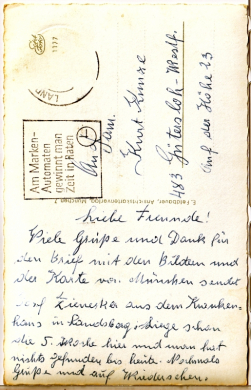 LAND
Am Marken-
Automaten
gewinnt man
Zeit in Raten
An Fam.
Kurt Kunze
483 Gütersloh-Westf.
Auf der Höhe 23
E. Feldbauer, Ansichtskartenverlag, München
Liebe Freunde!
Viele Grüße und Dank für
den Brief mit den Bildern und
die Karte von München sendet
aus dem Kranken-
haus in Landsberg. Liege schon
die 5. Woche hier und man hat
nichts gefunden bis heute. Nochmals
Grüße und auf Wiedersehen.